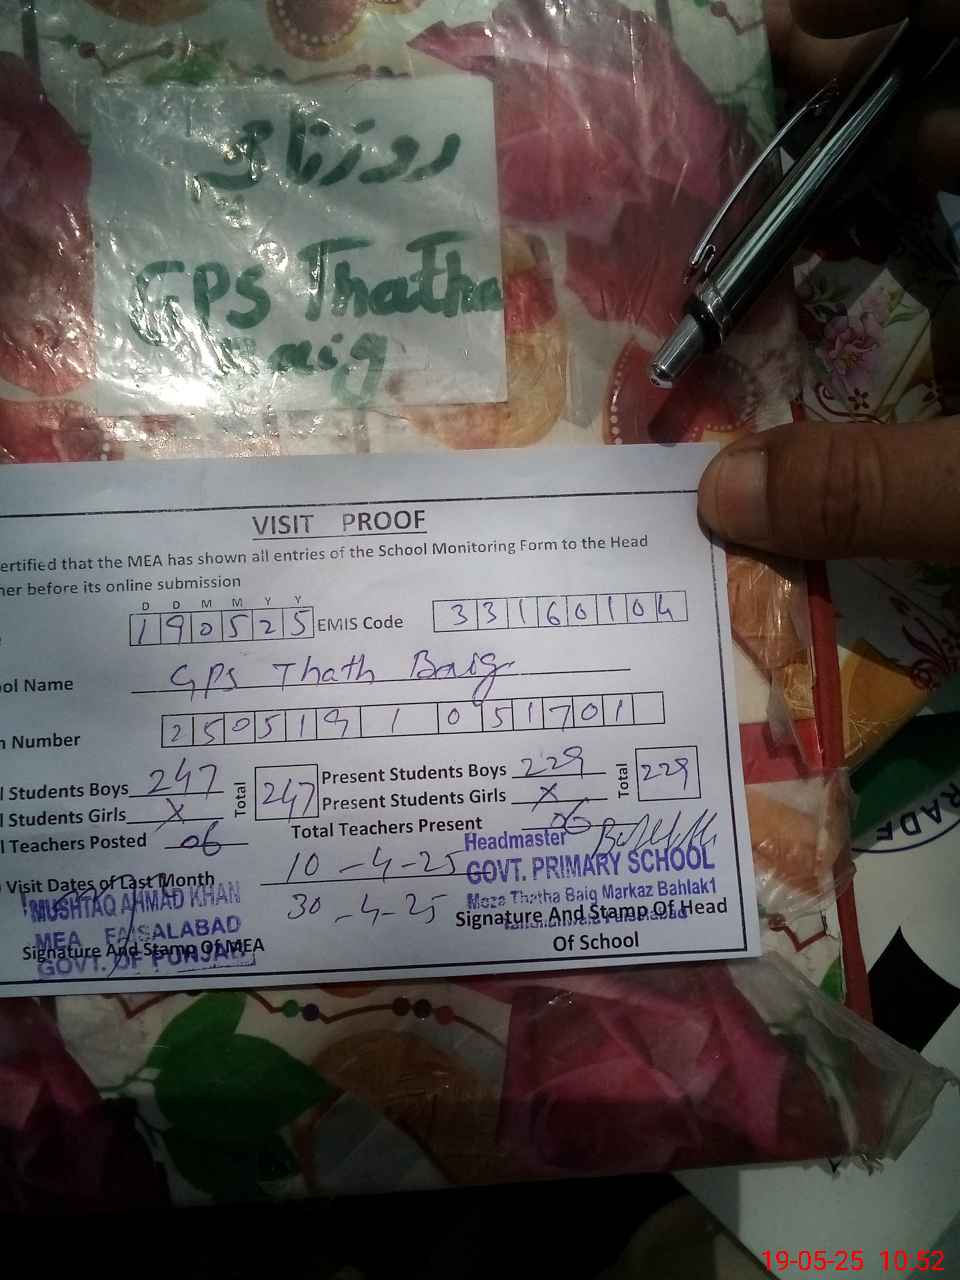 روزنامچہ
GPS Thatha
Baig
VISIT PROOF
ertified that the MEA has shown all entries of the School Monitoring Form to the Head
her before its online submission
D D M M Y Y
1 9 0 5 2 5 EMIS Code 3 3 1 6 0 1 0 4
ol Name GPS Thath Baig
n Number 2 5 0 5 1 9 1 0 5 1 7 0 1
l Students Boys 247 Total 247 Present Students Boys 229 Total 229
l Students Girls X Present Students Girls X
l Teachers Posted 06 Total Teachers Present 06
Headmaster
Visit Dates of Last Month 10-4-25 GOVT. PRIMARY SCHOOL
MUSHTAQ AHMAD KHAN 30-4-25 Moza Thatha Baig Markaz Bahlak1
MEA FAISALABAD Signature And Stamp Of Head
Signature And Stamp Of MEA Of School
GOVT. OF PUNJAB
RADE
19-05-25 10:52